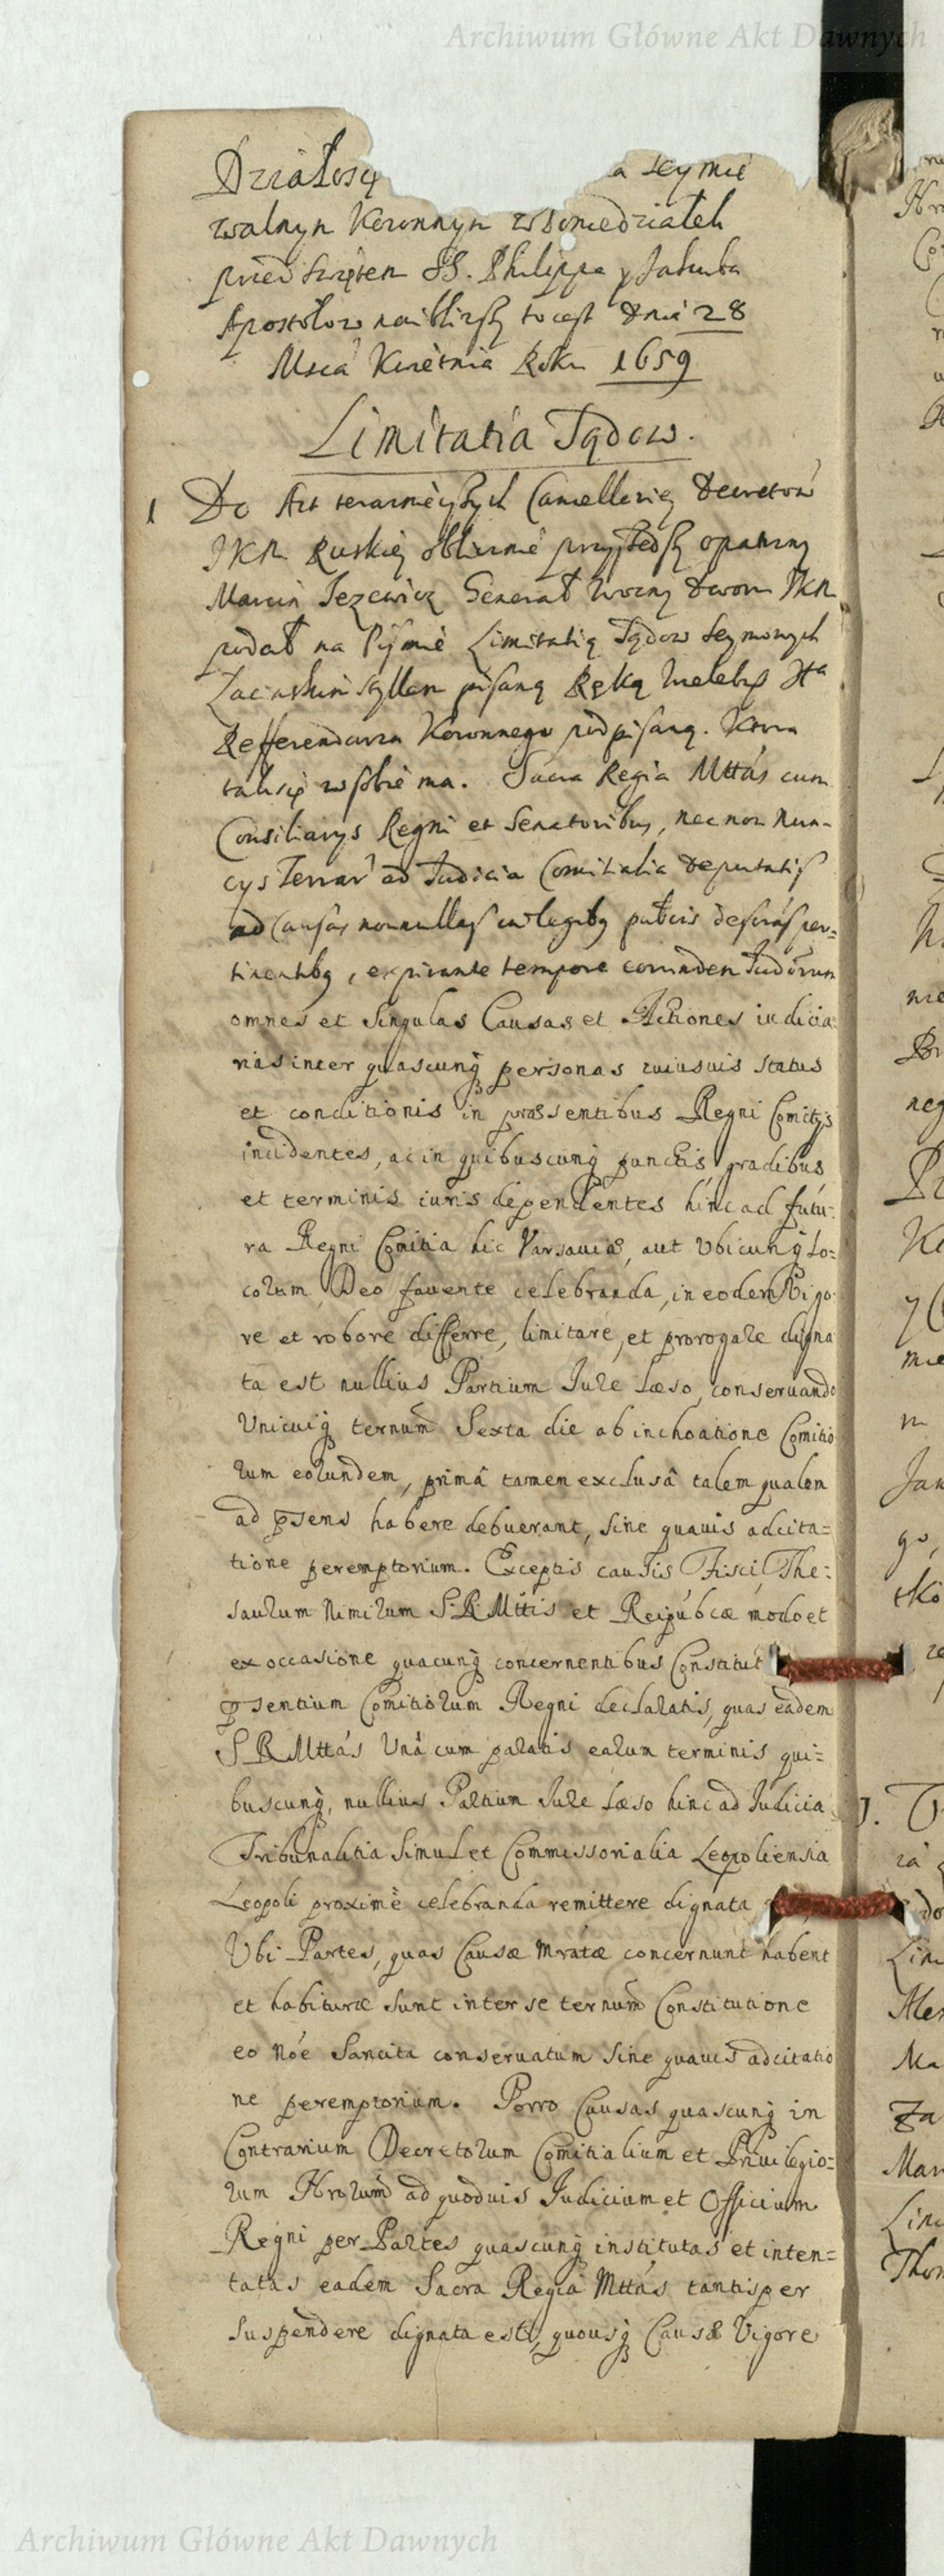 Archiwum Główne Akt Dawnych
Działosię a seymie
walnym Koronnym w Poniedziałek
przed Swiętem SS. Philippa y Jakuba
Apostołow naibliższy to iest dnia 28
Msca Kwietnia Roku 1659
Limitatia Sądow.
1 Do Akt teraznieyszych Cancellariey Decretow
JKM Ruskiey oblicznie przyszedszy opatrzny
Marcin Jezewicz Generał Wozny dworu JKM
podał na Pismie Limitatią Sądow Seymowych
Łacinskim stylem pisaną Ręką
Refferendarza Koronnego podpisaną. Ktora
taksię w sobie ma. Sacra Regia Mttás cum
Consiliarys Regni et Senatoribus, nec non Nun-
cys Terrar ad Judicia Comitialia deputatis
ad Causas nonnullas in legibq publicis descriptas per=
tinentibq, expirante tempore eorunden Judiorum
omnes et singulas Causas et Actiones iudicia:
rias inter quascunq personas cuiusuis status
et conditionis in præsentibus Regni Comitys
incidentes, ac in quibuscunq punctis gradibus
et terminis iuris dependentes hinc ad futu:
ra Regni Comitia hic Varsauiæ, aut Vbicunq lo=
corum Deo fauente celebranda, in eodem Rigo
re et robore differre, limitare, et prorogare digna
ta est nullius Partium Jure læso, conseruando
Vnicuiq ternum Sexta die ab inchoatione Comitio
rum eorundem, primâ tamen exclusâ talem qualem
ad psens habere debuerant, sine quauis adcita=
tione peremptorium. Exceptis causis Fisci, The:
saurum nimirum S. R. Mttis et Reipubcæ modo et
ex occasione quacunq concernentibus Constitut
psentium Comitiorum Regni declaratis, quas eadem
S R Mttás Vná cum paratis earum terminis qui=
buscunq, nullius Partium Jure læso hinc ad Judicia
Tribunalitia simul et Commissorialia Leopoliensia
Leopoli proximè celebranda remittere dignata
Vbi Partes, quas Causæ mratæ concernunt habent
et habituræ sunt inter se ternum Constitutione
eo nóe Sancita conseruatum sine quauis adcitatio
ne peremptorium. Porro Causas quascunq in
Contrarium Decretorum Comitialium et Priuilegio=
rum Hrorum ad quoduis Judicium et Officium
Regni per Partes quascunq institutas et inten=
tatas eadem Sacra Regia Mttás tantisper
suspendere dignata est, quousq Causæ Vigore
Archiwum Główne Akt Dawnych